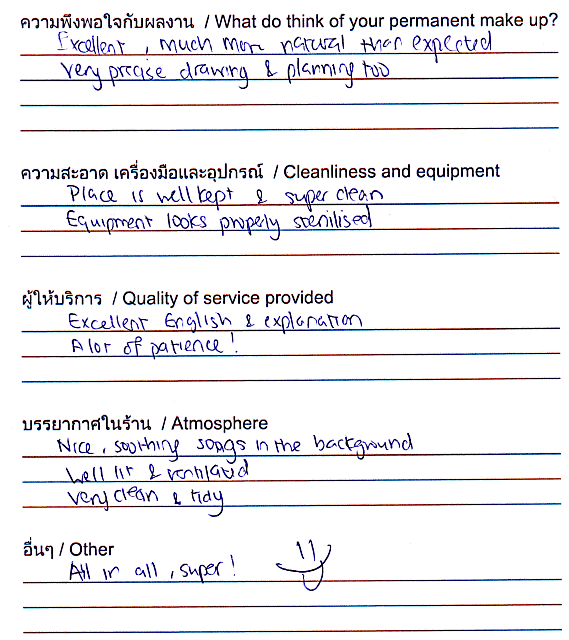 ความพึงพอใจกับผลงาน / What do think of your permanent make up?
Excellent, much more natural than expected
Very precise drawing & planning too
ความสะอาด เครื่องมือและอุปกรณ์ / Cleanliness and equipment
Place is well kept & super clean
Equipment looks properly sterilised
ผู้ให้บริการ / Quality of service provided
Excellent English & explanation
A lot of patience!
บรรยากาศในร้าน / Atmosphere
Nice, soothing songs in the background
Well lit & ventilated
Very clean & tidy
อื่นๆ / Other
All in all, super!